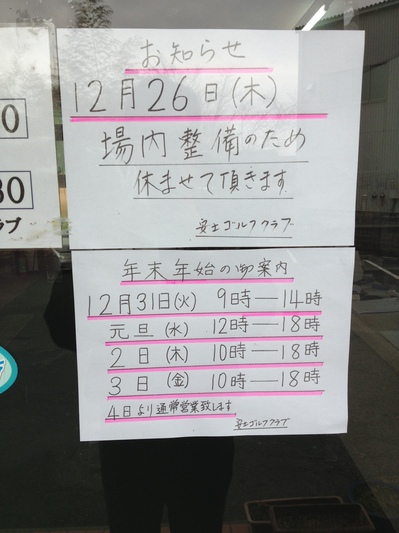 お知らせ
12月26日(木)
場内整備のため
休ませて頂きます
安土ゴルフクラブ
年末年始の御案内
12月31日(火) 9時―14時
元旦(水) 12時―18時
2日(木) 10時―18時
3日(金) 10時―18時
4日より通常営業致します
安土ゴルフクラブ
0
30
ラブ